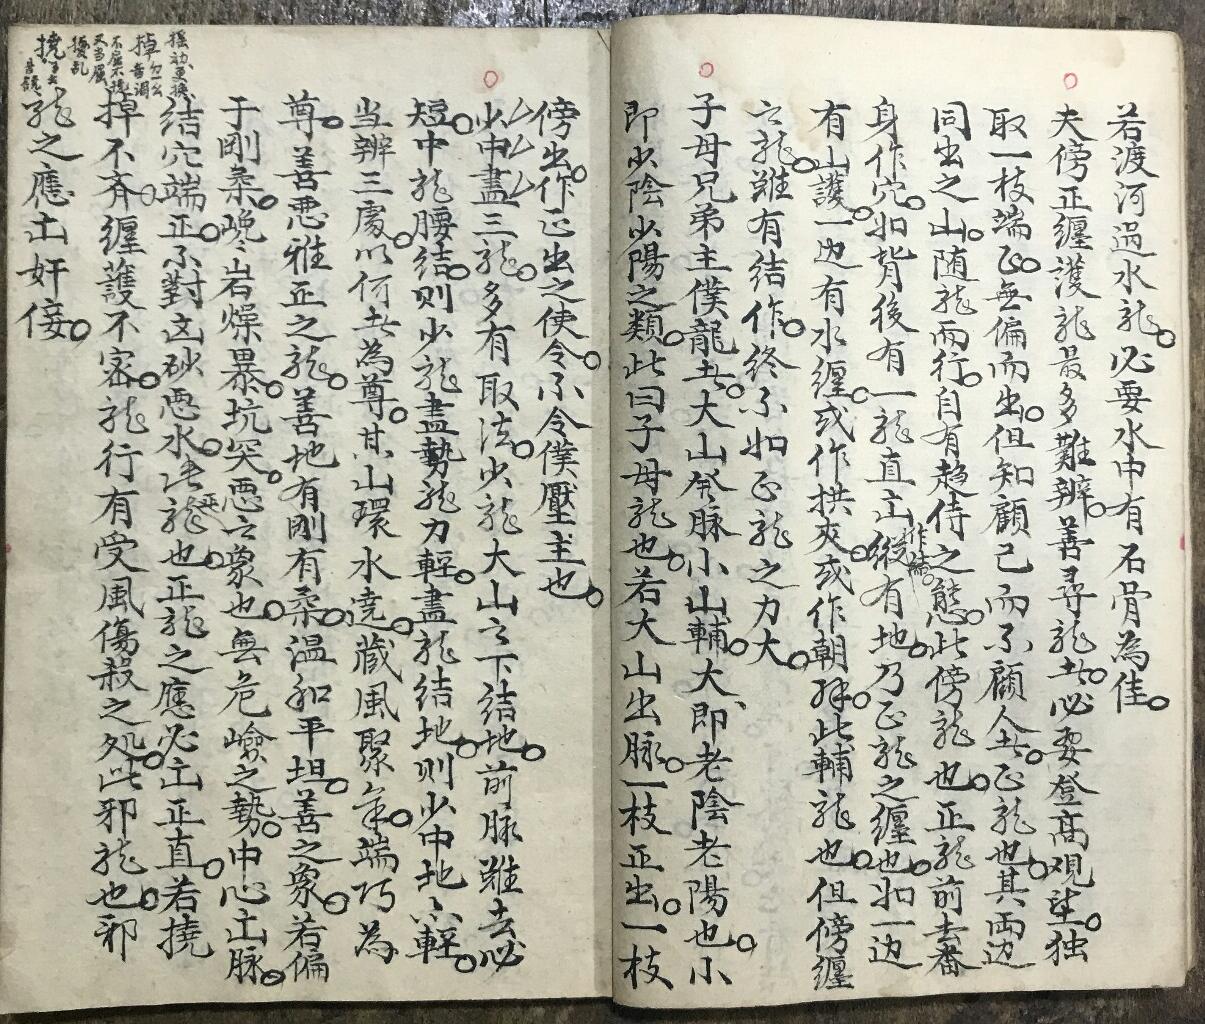 若渡河過水龍。必要水中有石骨為佳。
夫傍正纏護龍最多難辨。善尋龍者。必要登高观望。独
取一枝端正無偏而出。但知顧己而不顧人者。正龍也。其両边
同出之山。随龍而行。自有趋侍之態。此傍龍也。正龍前去番
身作穴。如背後有一龍直立縱有地。乃正龍之纏也。如一边
有山護。一边有水纏。或作拱夾。或作朝拜。此輔龍也。但傍纏
之龍。雖有結作。終不如正龍之力大。
子母兄弟主僕龍者。大山発脉小山輔。大即老陰老陽也。小
即少陰少陽之類。此曰子母龍也。若大山出脉。一枝正出。一枝
傍出。作正出之使令。不令僕壓主也。
少中盡三龍。多有取法。少龍大山之下結地。前脉雖去必
短。中龍腰結。則少龍盡勢龍力輕。盡龍結地。則少中地六輕。
当辨三處。以何者為尊。其山環水遶。藏風聚气。端巧為
尊。善悪雅正之龍。善地有剛有柔。温和平坦。善之象。若偏
于剛柔。巉岩燥暴。坑突。悪之象也。無危嶮之勢。中心出脉。
結穴端正。不對凶砂悪水。龍也。正龍之應。必出正直。若撓
掉不斉。纏護不密。龍行有受風傷殺之処。此邪龍也。邪
龍之應。出奸佞。